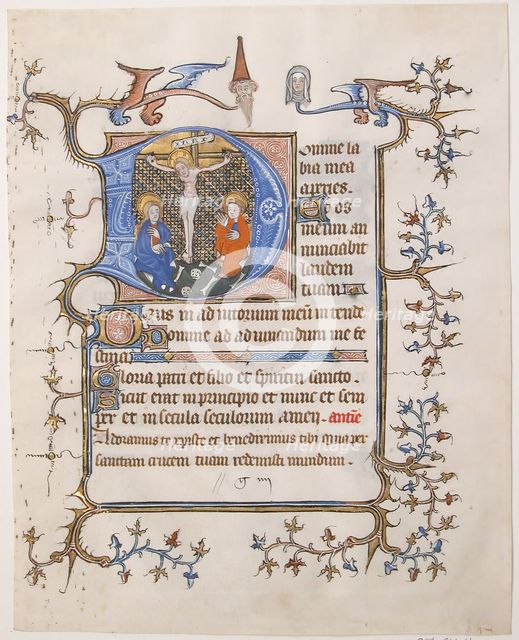 Domine la
bia mea
aperies.
Et os
meum an
nunciabit
laudem
tuam
Deus in adiutorium meum intende
Domine ad adiuvandum me fe
stina
Gloria patri et filio et spiritui sancto
Sicut erat in principio et nunc et sem
per et in secula seculorum amen. antiene
Adoramus te xpiste et benedicimus tibi quia per
sanctam crucem tuam redemisti mundum.
Heritage
Heritage
Heritage
Heritage
Heritage